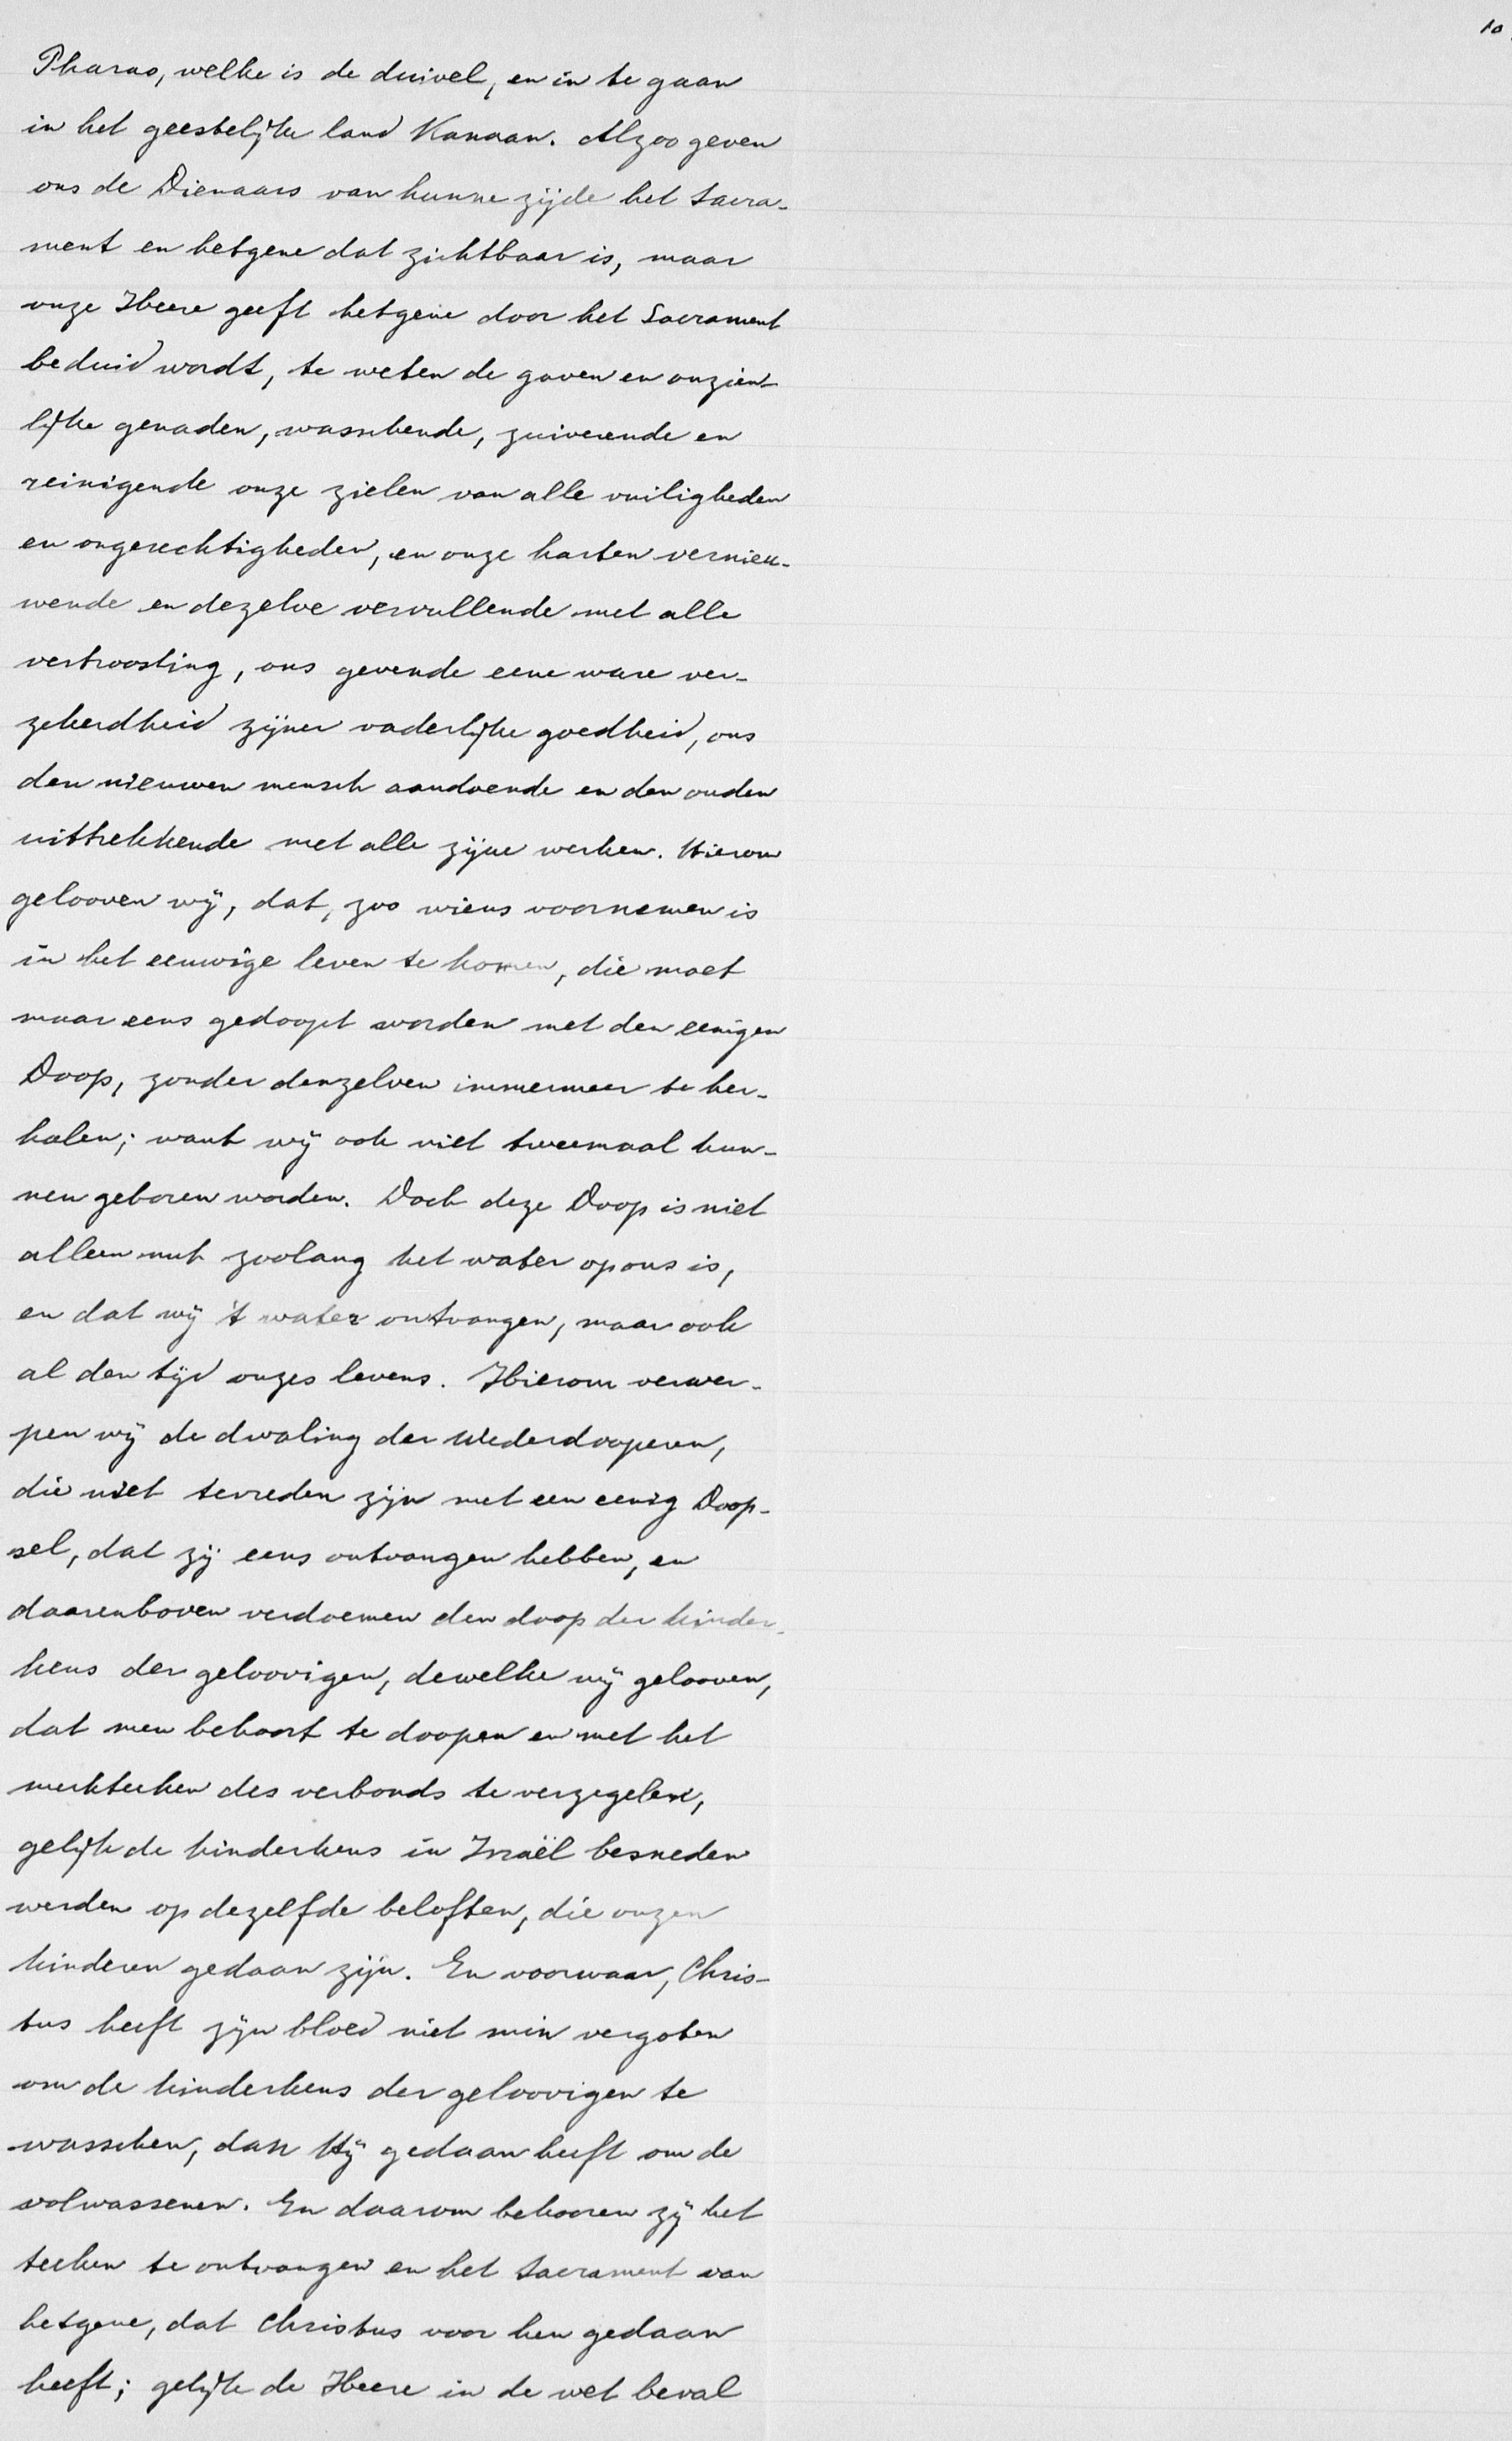 10
Pharao, welke is de duivel, en in te gaan
in het geestelijke land Kanaan. Alzoo geven
ons de Dienaars van hunne zijde het Sacra-
ment en hetgene dat zichtbaar is, maar
onze Heere geeft hetgene door het Sacrament
beduid wordt, te weten de gaven en onzien-
lijke genaden, wasschende, zuiverende en
reinigende onze zielen van alle vuiligheden
en ongerechtigheden, en onze harten vernieu-
wende en dezelve vervullende met alle
vertroosting, ons gevende eene ware ver-
zekerdheid zijner vaderlijke goedheid, ons
den nieuwen mensch aandoende en den ouden
uittrekkende met alle zijne werken. Hierom
gelooven wij, dat, zoo wiens voornemen is
in het eeuwige leven te komen, die moet
maar eens gedoopt worden met den eenigen
Doop, zonder denzelven immermeer te her-
halen; want wij ook niet tweemaal kun-
nen geboren worden. Doch deze Doop is niet
alleen nut zoolang het water op ons is,
en dat wij 't water ontvangen, maar ook
al den tijd onzes levens. Hierom verwer-
pen wij de dwaling der Wederdooperen,
die niet tevreden zijn met een eenig Doop-
sel, dat zij eens ontvangen hebben, en
daarenboven verdoemen den doop der kinder-
kens der geloovigen, dewelke wij gelooven,
dat men behoort te doopen en met het
merkteeken des verbonds te verzegelen,
gelijk de kinderkens in Israël besneden
werden op dezelfde beloften, die onzen
kinderen gedaan zijn. En voorwaar, Chris-
tus heeft zijn bloed niet min vergoten
om de kinderkens der geloovigen te
wasschen, dan Hij gedaan heeft om de
volwassenen. En daarom behooren zij het
teeken te ontvangen en het Sacrament van
hetgene, dat Christus voor hen gedaan
heeft; gelijk de Heere in de wet beval